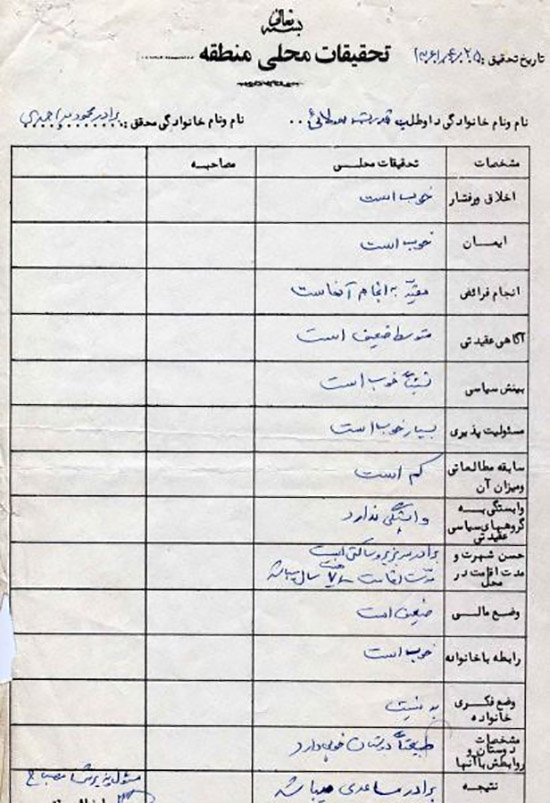 بسمه تعالی
تحقیقات محلی منطقه
تاریخ تحقیق :
نام ونام خانوادگی داوطلب قدرت
نام ونام خانوادگی محقق : برادر محمود
مشخصات تحقیقات محلی مصاحبه
اخلاق ورفتار خوب است
ایمان خوب است
انجام فرائض مقیّد به انجام آنهاست
آگاهی عقیدتی متوسط ضعیف است
بینش سیاسی نسبتاً خوب است
مسئولیت پذیری بسیار خوب است
سابقه مطالعاتی ومیزان آن کم است
وابستگی به گروههای سیاسی عقیدتی وابستگی ندارد
حسن شهرت و مدت اقامت در محل برادر سربزیر و ساکتی است
مدت اقامت ۷ سال میباشد
وضع مالی ضعیف است
رابطه باخانواده خوب است
وضع فکری خانواده بد نیست
مشخصات دوستان و روابطش باآنها دوستان خوبی دارد
نتیجه برادر مساعدی میباشد
مسئول پذیرش